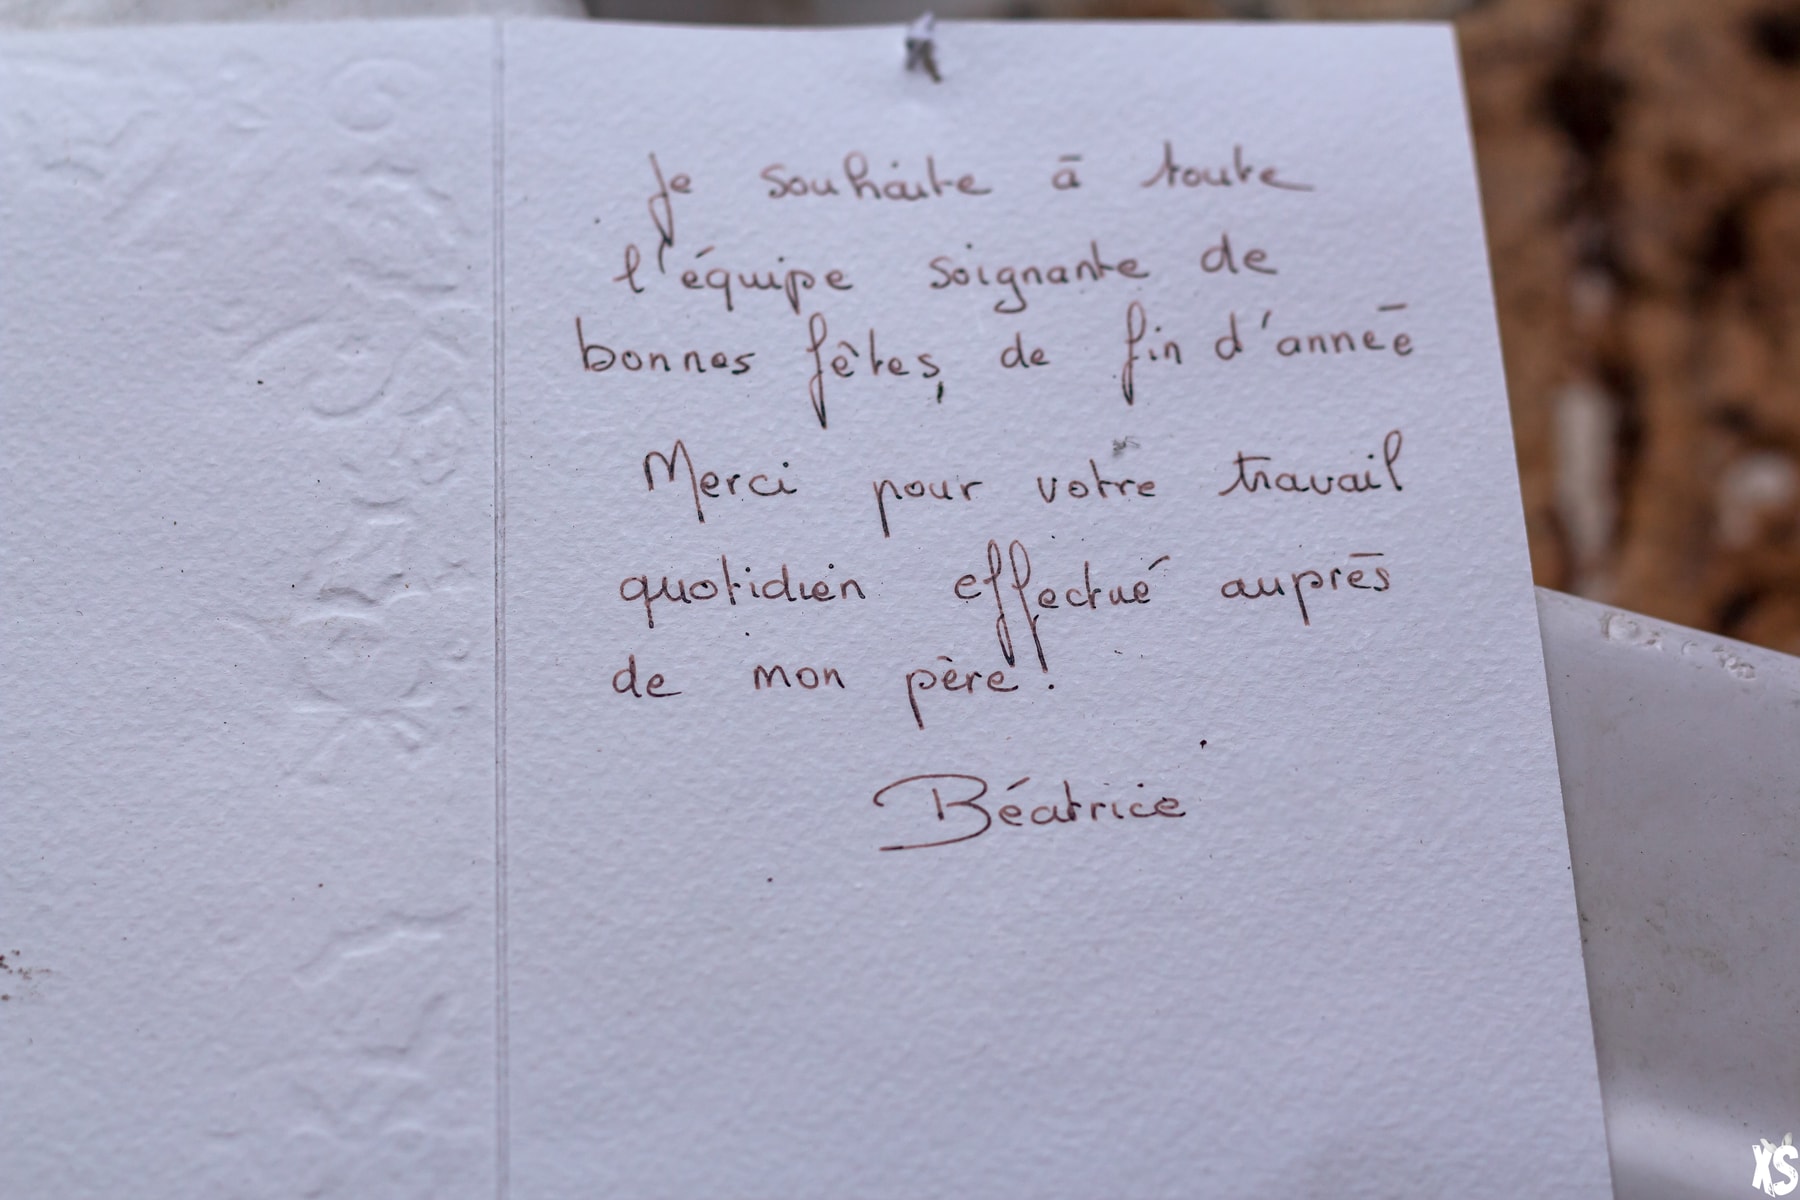 Je souhaite à toute
l'équipe soignante de
bonnes fêtes, de fin d'année
Merci pour votre travail
quotidien effectué auprès
de mon père.
Béatrice
XS